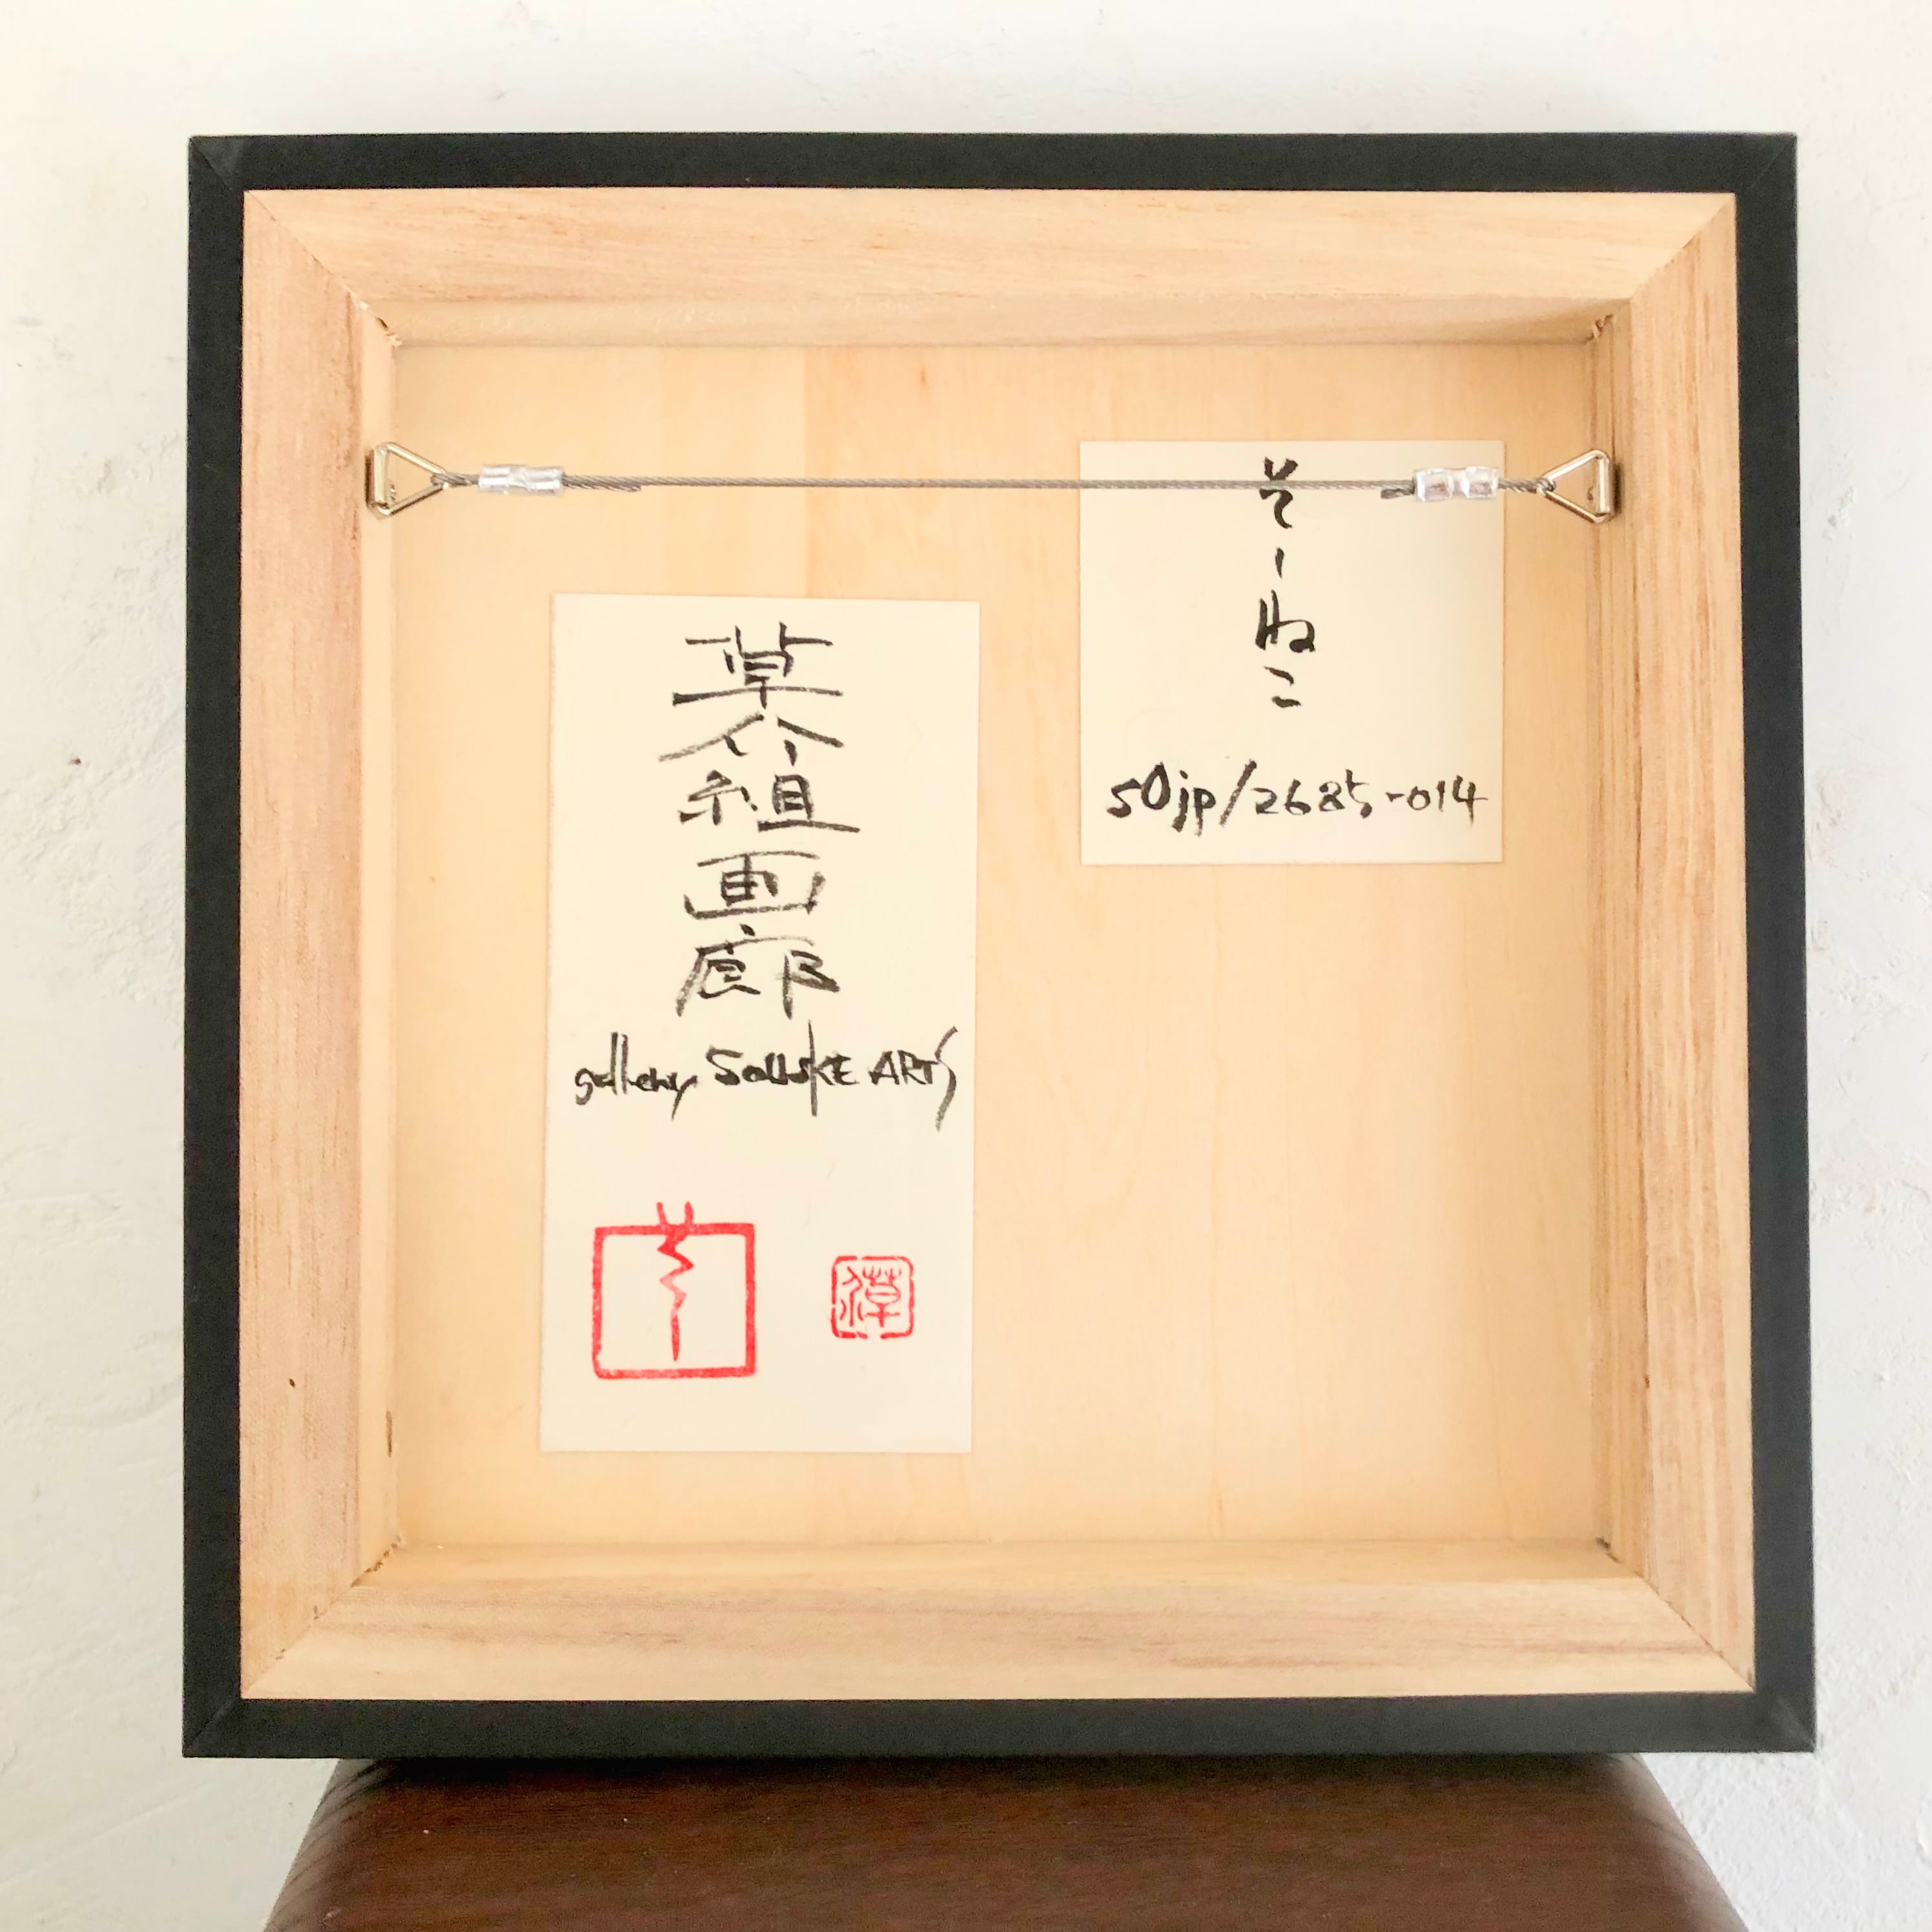 そーねこ
50jp/2685-014
草介組画廊
gallery SousKE ARTS